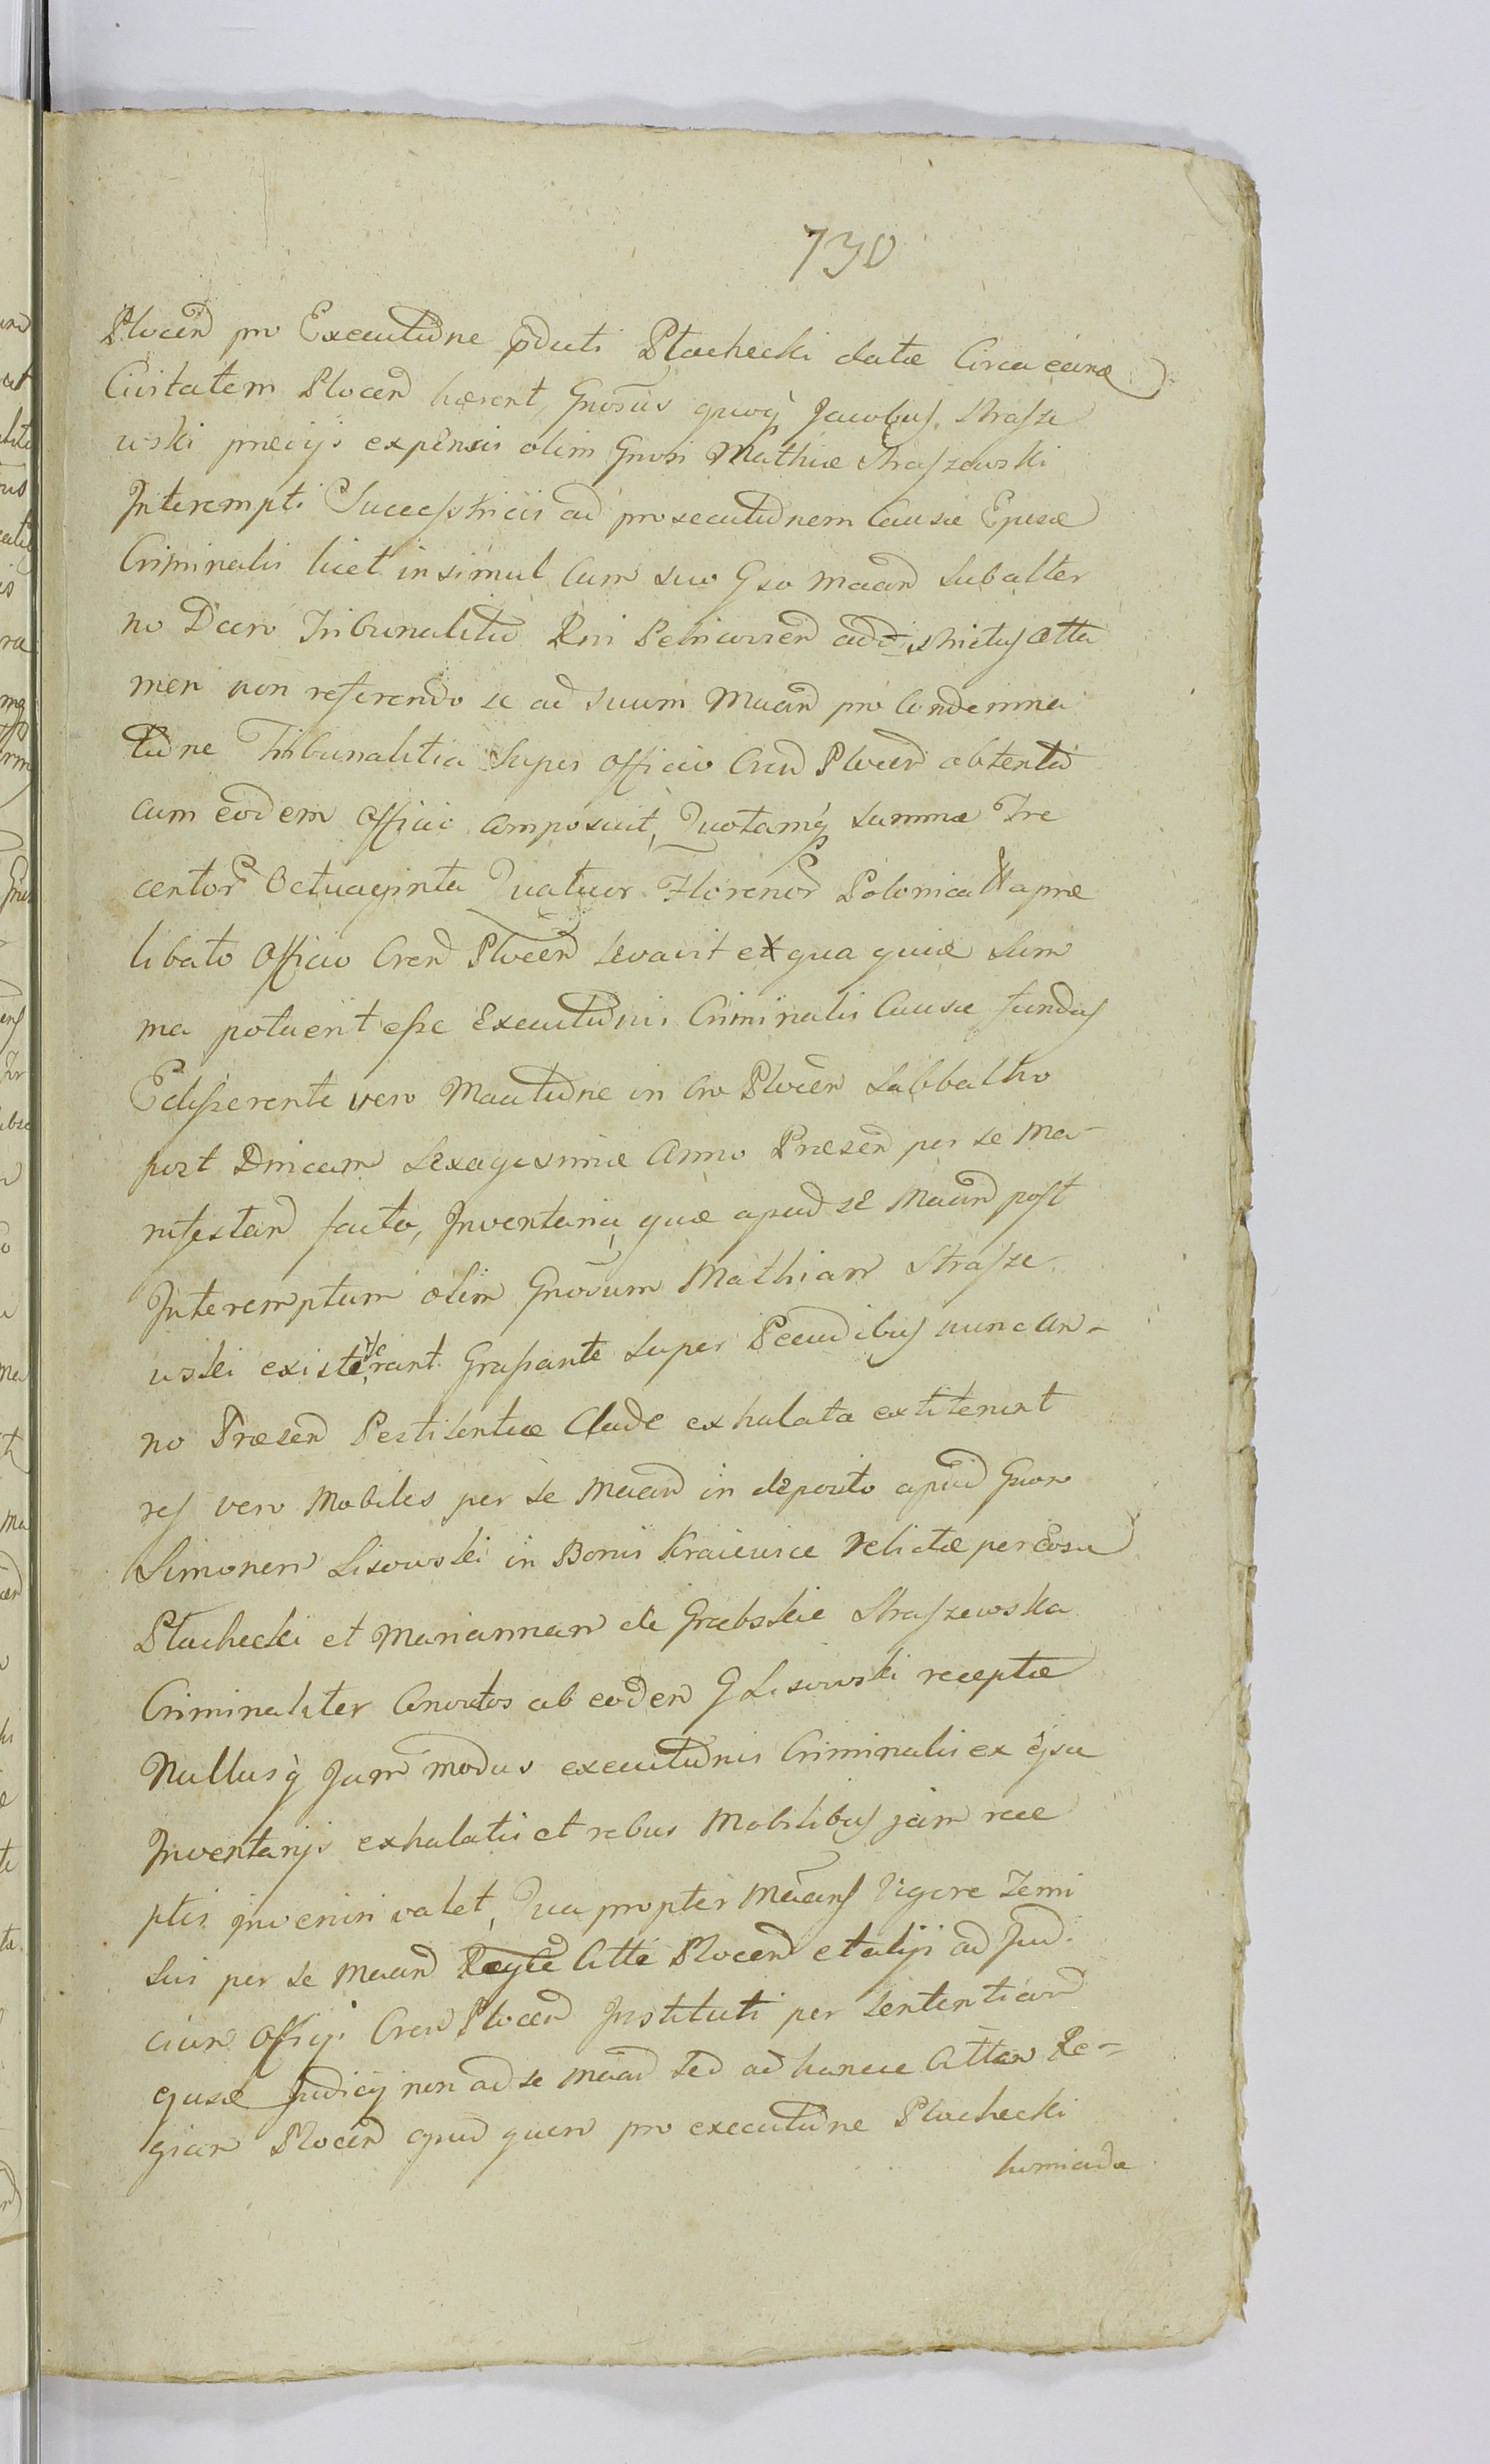 730
Plocen pro Executione pducti Płachecki datæ Circa eand
Civitatem Plocen hærent, Gnosus quoq Jacobus Strasze
wski præviis expensis olim Gnosi Mathiæ Straszewski
Interempti Successricis ad prosecutionem Causæ Ejusd
Criminalis licet in simul Cum suo Gso Maan Subalter
no Decro Tribunalitio Rni Petricovien addistrictus Atta
men non referendo se ad suum Maan pro Condemna
tione Tribunalitia Super Officio Cren Plocen obtenta
cum eodem Officio Composuit, Quotamq Summæ Tre
centor Octuaginta Quatuor Florenor Polonical a præ
libato Officio Cren Plocen Levavit ex qua quid Sum
ma potuerit esse Executionis Criminalis Causæ fundus
Edisserente vero Mautione in Cro Plocen Sabbatho
post Dnicam Sexagesimæ Anno Præsen per se Ma-
nifestan facto, Inventaria quæ apud se Maan post
Interemptum olim Gnosum Mathiam Strasze-
wski existerant Grassante Super Pecudibus nunc An-
no Præsen Pestilentiæ Clade exhalata extiterint
res vero Mobiles per se Maan in deposito apud Gnon
Simonem Lisowski in Bonis Kraiewice relictæ per Eosd
Płachecki et Mariannam de Grabskie Straszewska
Criminaliter Convictos ab eodem G Lisowski receptæ
Nullusq Jam modus executionis Criminalis ex
Inventarijs exhalatis et rebus Mobilibus jam rece
ptis inveniri valet, Qua propter Maans Vigore Termi
sui per se Maan Attæ Plocen et alijs ad Jud.
cium Officij Cren Plocen Instituti per Sententiam
ejusd Judicij non ad se Maan sed ad hancce Attam Re-
giam Plocen apud quem pro executione Płachecki
homicida